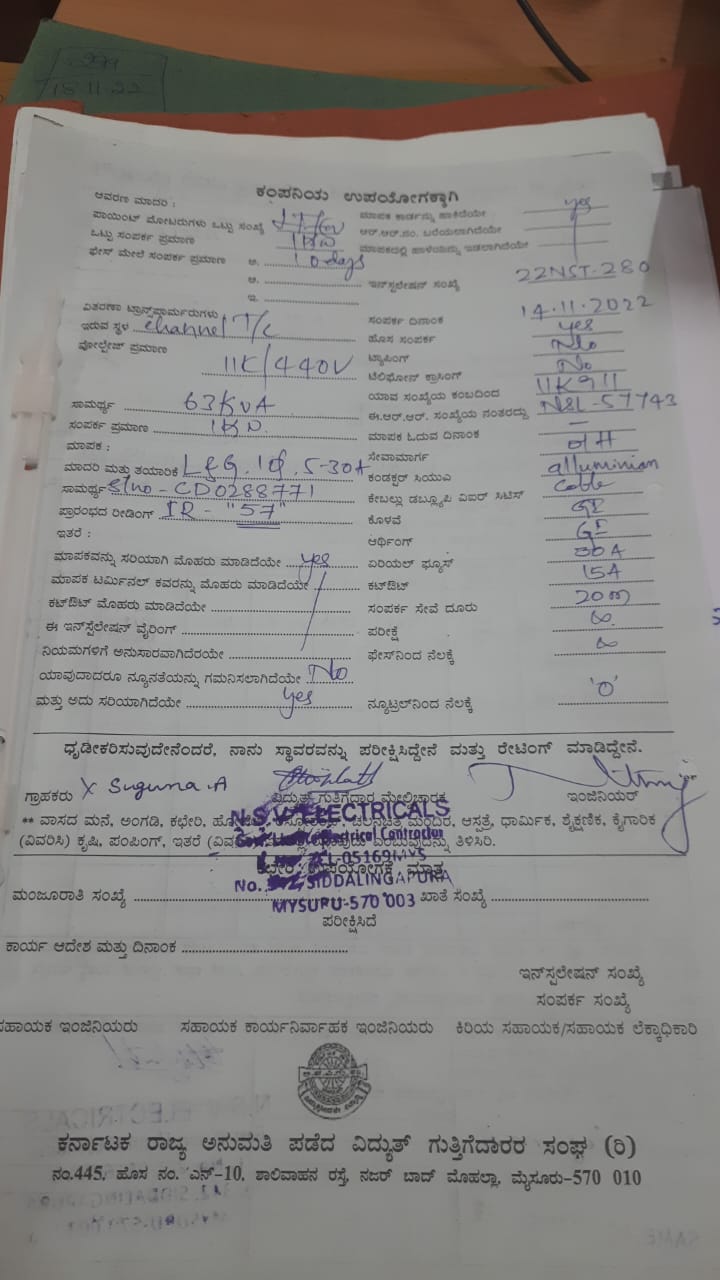 299
18.11.22
ಕಂಪನಿಯ ಉಪಯೋಗಕ್ಕಾಗಿ
ಆವರಣ ಮಾದರಿ :
ಪಾಯಿಂಟ್ ಮೋಟರುಗಳು ಒಟ್ಟು ಸಂಖ್ಯೆ
ಒಟ್ಟು ಸಂಪರ್ಕ ಪ್ರಮಾಣ 1KW
ಫೇಸ್ ಮೇಲೆ ಸಂಪರ್ಕ ಪ್ರಮಾಣ ಅ. 10 days
ಆ.
ಇ.
ವಿತರಣಾ ಟ್ರಾನ್ಸ್‌ಫಾರ್ಮರುಗಳು
ಇರುವ ಸ್ಥಳ channel T/c
ವೋಲ್ಟೇಜ್ ಪ್ರಮಾಣ
11K/440V
ಸಾಮರ್ಥ್ಯ 63KVA
ಸಂಪರ್ಕ ಪ್ರಮಾಣ 1KW
ಮಾಪಕ :
ಮಾದರಿ ಮತ್ತು ತಯಾರಿಕೆ L&G. 1Ø. 5-30A
ಸಾಮರ್ಥ್ಯ Sl no - CD0288771
ಪ್ರಾರಂಭದ ರೀಡಿಂಗ್ IR - "57"
ಇತರೆ :
ಮಾಪಕವನ್ನು ಸರಿಯಾಗಿ ಮೊಹರು ಮಾಡಿದೆಯೇ yes
ಮಾಪಕ ಟರ್ಮಿನಲ್ ಕವರನ್ನು ಮೊಹರು ಮಾಡಿದೆಯೇ
ಕಟ್‌ಔಟ್ ಮೊಹರು ಮಾಡಿದೆಯೇ
ಈ ಇನ್‌ಸ್ಟಲೇಷನ್ ವೈರಿಂಗ್
ನಿಯಮಗಳಿಗೆ ಅನುಸಾರವಾಗಿದೆರಯೇ
ಯಾವುದಾದರೂ ನ್ಯೂನತೆಯನ್ನು ಗಮನಿಸಲಾಗಿದೆಯೇ No
ಮತ್ತು ಅದು ಸರಿಯಾಗಿದೆಯೇ yes
ಮಾಪಕ ಕಾರ್ಡನ್ನು ಹಾಕಿದೆಯೇ yes
ಆರ್.ಆರ್.ನಂ. ಬರೆಯಲಾಗಿದೆಯೇ
ಮಾಪಕದಲ್ಲಿ ಹಾಳೆಯನ್ನು ಇಡಲಾಗಿದೆಯೇ
ಇನ್‌ಸ್ಟಲೇಷನ್ ಸಂಖ್ಯೆ 22NST-280
ಸಂಪರ್ಕ ದಿನಾಂಕ 14.11.2022
ಹೊಸ ಸಂಪರ್ಕ yes
ಟ್ಯಾಪಿಂಗ್ No
ಟೆಲಿಫೋನ್ ಕ್ರಾಸಿಂಗ್ No
ಯಾವ ಸಂಖ್ಯೆಯ ಕಂಬದಿಂದ 11K911
ಈ.ಆರ್.ಆರ್. ಸಂಖ್ಯೆಯ ನಂತರದ್ದು NSL-57743
ಮಾಪಕ ಓದುವ ದಿನಾಂಕ –
ಸೇವಾಮಾರ್ಗ OH
ಕಂಡಕ್ಟರ್ ಸಿಯುಎ alluminian
ಕೇಬಲ್ಲು ಡಬ್ಲ್ಯೂಪಿ ವಿಐರ್ ಸಿಟಿಸ್ cable
ಕೊಳವೆ GI
ಆರ್ಥಿಂಗ್ GI
ಏರಿಯಲ್ ಫ್ಯೂಸ್ 30A
ಕಟ್‌ಔಟ್ 15A
ಸಂಪರ್ಕ ಸೇವೆ ದೂರು 20m
ಪರೀಕ್ಷೆ ∞
ಫೇಸ್‌ನಿಂದ ನೆಲಕ್ಕೆ ∞
ನ್ಯೂಟ್ರಲ್‌ನಿಂದ ನೆಲಕ್ಕೆ 'O'
ಧೃಡೀಕರಿಸುವುದೇನೆಂದರೆ, ನಾನು ಸ್ಥಾವರವನ್ನು ಪರೀಕ್ಷಿಸಿದ್ದೇನೆ ಮತ್ತು ರೇಟಿಂಗ್ ಮಾಡಿದ್ದೇನೆ.
ಗ್ರಾಹಕರು X Suguna.A ವಿದ್ಯುತ್ ಗುತ್ತಿಗೆದಾರ ಮೇಲಿಚಾರಕ ಇಂಜಿನಿಯರ್
** ವಾಸದ ಮನೆ, ಅಂಗಡಿ, ಕಛೇರಿ, ಚಲನಚಿತ್ರ ಮಂದಿರ, ಆಸ್ಪತ್ರೆ, ಧಾರ್ಮಿಕ, ಶೈಕ್ಷಣಿಕ, ಕೈಗಾರಿಕ
(ವಿವರಿಸಿ) ಕೃಷಿ, ಪಂಪಿಂಗ್, ಇತರೆ ಎಂಬುವುದನ್ನು ತಿಳಿಸಿರಿ.
N.S.V. ELECTRICALS
Electrical Contractor
CL-05169MYS
SIDDALINGAPURA
MYSURU-570 003
ಕಛೇರಿ ಉಪಯೋಗಕ್ಕೆ ಮಾತ್ರ
ಮಂಜೂರಾತಿ ಸಂಖ್ಯೆ ಖಾತೆ ಸಂಖ್ಯೆ
ಪರೀಕ್ಷಿಸಿದೆ
ಕಾರ್ಯ ಆದೇಶ ಮತ್ತು ದಿನಾಂಕ
ಇನ್‌ಸ್ಪಲೇಷನ್ ಸಂಖ್ಯೆ
ಸಂಪರ್ಕ ಸಂಖ್ಯೆ
ಸಹಾಯಕ ಇಂಜಿನಿಯರು ಸಹಾಯಕ ಕಾರ್ಯನಿರ್ವಾಹಕ ಇಂಜಿನಿಯರು ಕಿರಿಯ ಸಹಾಯಕ/ಸಹಾಯಕ ಲೆಕ್ಕಾಧಿಕಾರಿ
ಕರ್ನಾಟಕ ರಾಜ್ಯ ಅನುಮತಿ ಪಡೆದ ವಿದ್ಯುತ್ ಗುತ್ತಿಗೆದಾರರ ಸಂಘ (ರಿ)
ನಂ.445, ಹೊಸ ನಂ. ಎನ್-10, ಶಾಲಿವಾಹನ ರಸ್ತೆ, ನಜರ್ ಬಾದ್ ಮೊಹಲ್ಲಾ, ಮೈಸೂರು-570 010